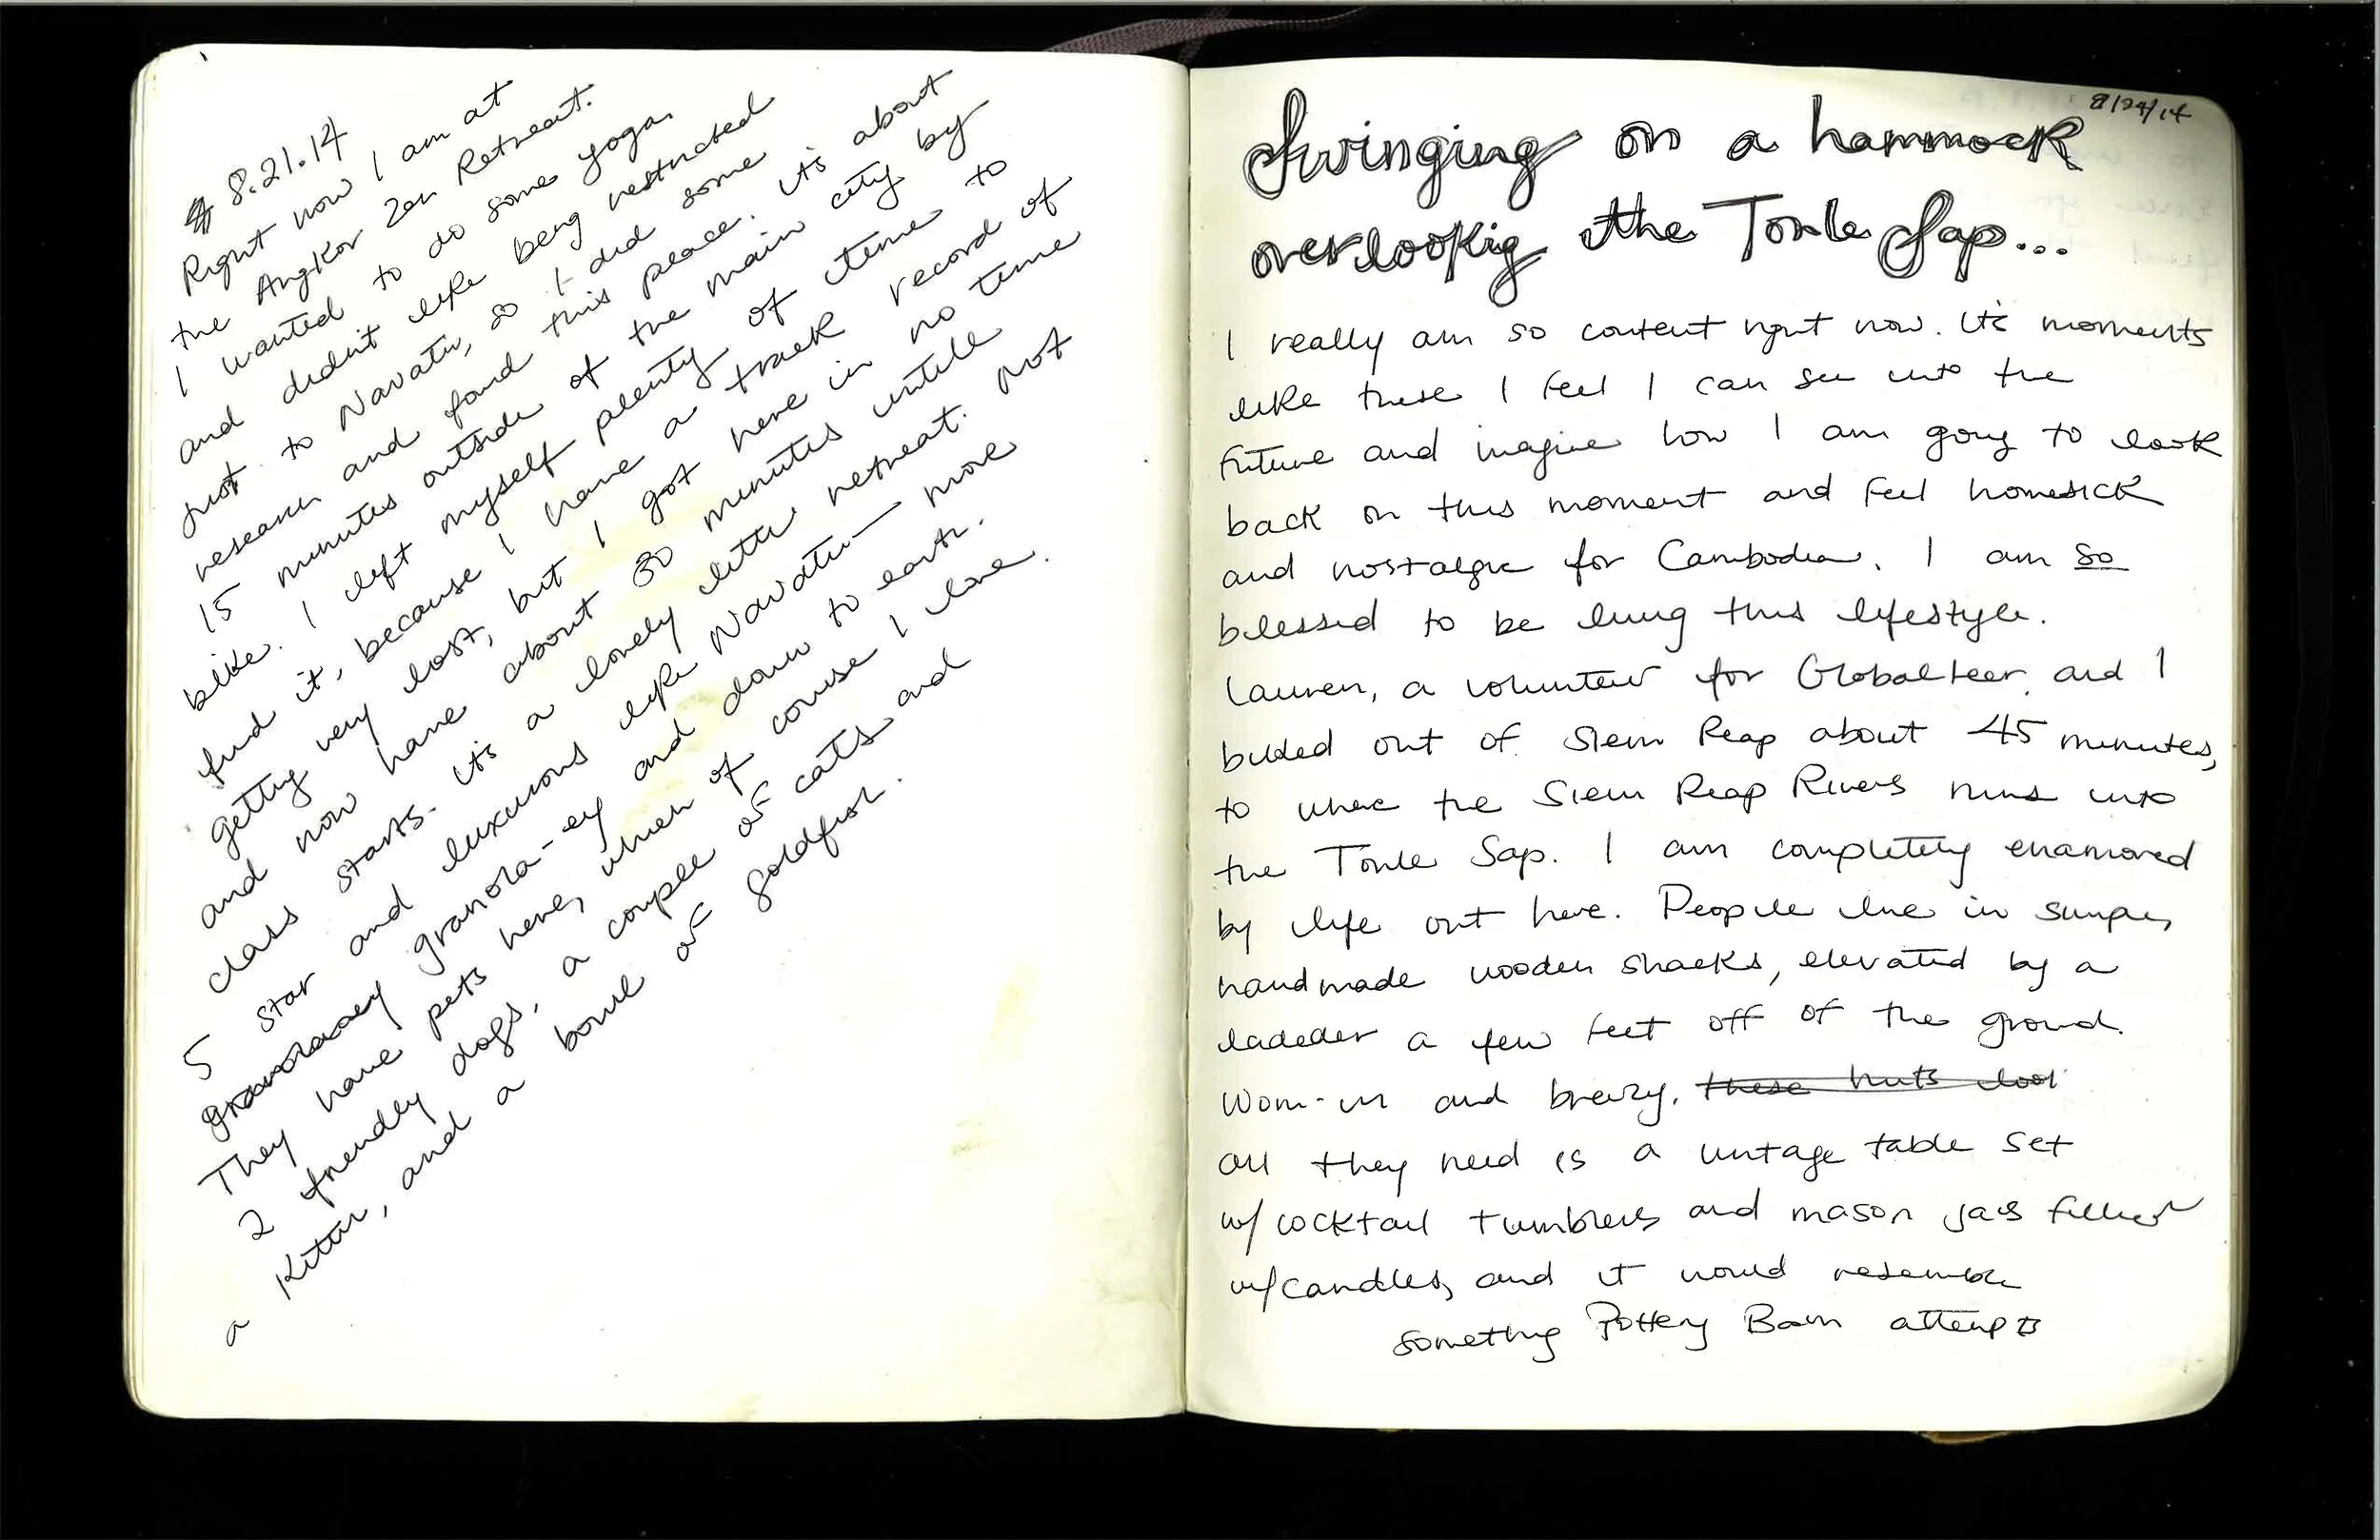 8.21.14
Right now I am at
the Angkor Zen Retreat.
I wanted to do some yoga,
and didn't like being restricted
just to Navatu, so I did some
research and found this place. It's about
15 minutes outside of the main city by
bike. I left myself plenty of time to
find it, because I have a track record of
getting very lost, but I got here in no time
and now have about 30 minutes until
class starts. It's a lovely little retreat. Not
5 star and luxurious like Navatu— more
granola-ey and down to earth.
They have pets here, whom of course I love.
2 friendly dogs, a couple of cats and
a kitten, and a bowl of goldfish.
8/24/14
Swinging on a hammock
overlookig the Tonle Sap...
I really am so content right now. It's moments
like these I feel I can see into the
future and imagine how I am going to look
back on this moment and feel homesick
and nostalgic for Cambodia. I am so
blessed to be living this lifestyle.
Lauren, a volunteer for Globalteer, and I
biked out of Siem Reap about 45 minutes,
to where the Siem Reap Rivers runs into
the Tonle Sap. I am completely enamored
by life out here. People live in simple,
handmade wooden shacks, elevated by a
ladeder a few feet off of the ground.
Worn-in and breezy, these huts look
all they need is a vintage table set
w/ cocktail tumblers and mason jars filled
w/ candles, and it would resemble
something Pottery Barn attempts